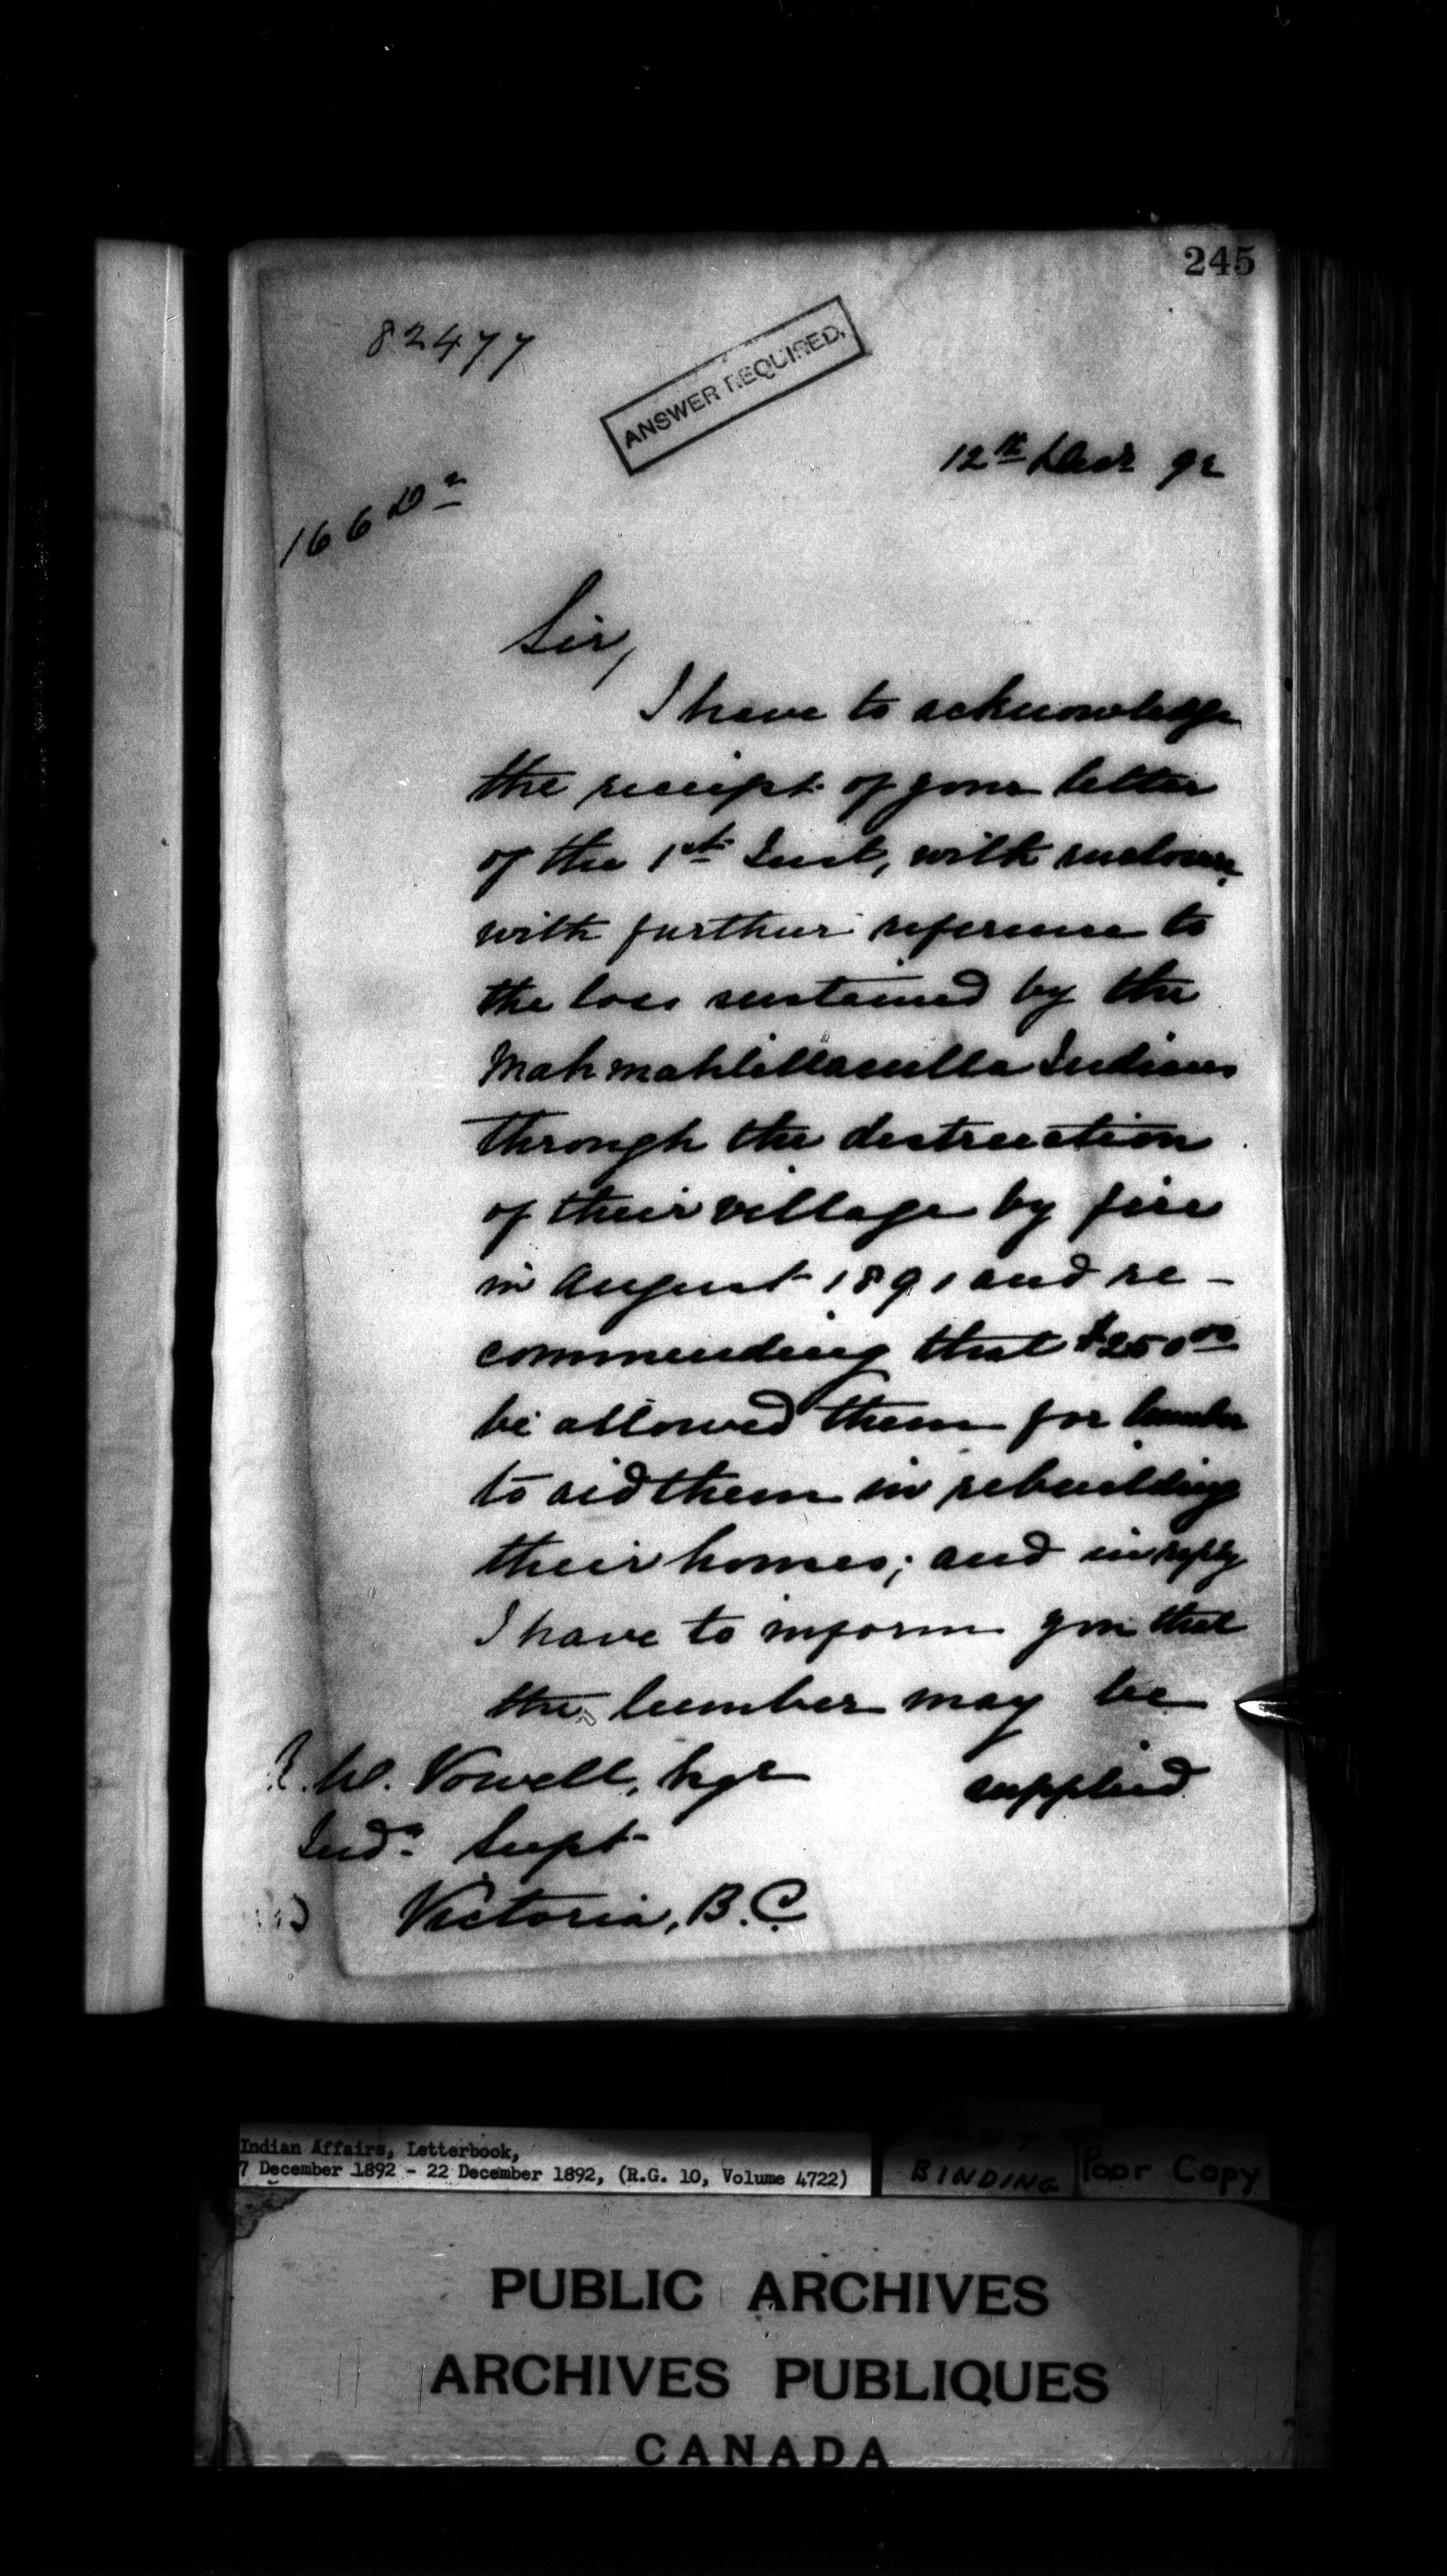 245
82477
ANSWER REQUIRED.
12th Decr 92
166
Sir,
I have to acknowledge
the receipt of your letter
of the 1st Inst, with enclosure,
with further reference to
the loss sustained by the
Mahmahlillaculla Indians
through the destruction
of their village by fire
in August 1891 and re-
commending that $250.00
be allowed them for lumber
to aid them in rebuilding
their homes; and in reply
I have to inform you that
the lumber may be
supplied
W. Vowell, Esqr
Indn Supt
Victoria, B.C.
Indian Affairs, Letterbook,
7 December 1892 - 22 December 1892, (R.G. 10, Volume 4722)
BINDING
Poor Copy
PUBLIC ARCHIVES
ARCHIVES PUBLIQUES
CANADA